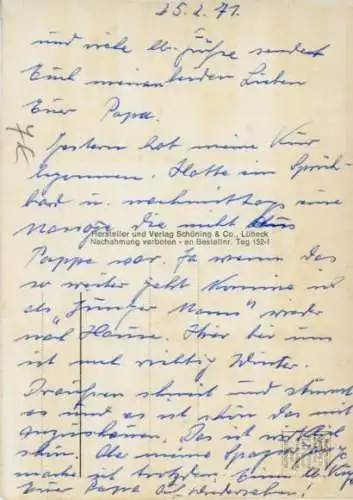 25.2.71.
und viele lb. Grüße sendet
Euch meinen beiden Lieben
Euer Papa.
Gestern hat meine Kur
begonnen. Hatte ein Sprudel
bad u. nachmittags eine
Massage die nicht aus
Hersteller und Verlag Schöning & Co., Lübeck
Nachahmung verboten - en Bestellnr. Teg 152-I
Pappe war. Ja wenn das
so weiter geht komme ich
als "junger Mann" wieder
nach Hause. Hier bei uns
ist noch richtig Winter.
Draußen schneit und stürmt
es und es ist schön das mit
anzuschauen. Das ist
schön. Aber meine
mache ich trotzdem. Einen lb. Kuß
Euer Papa auf wiedersehen!